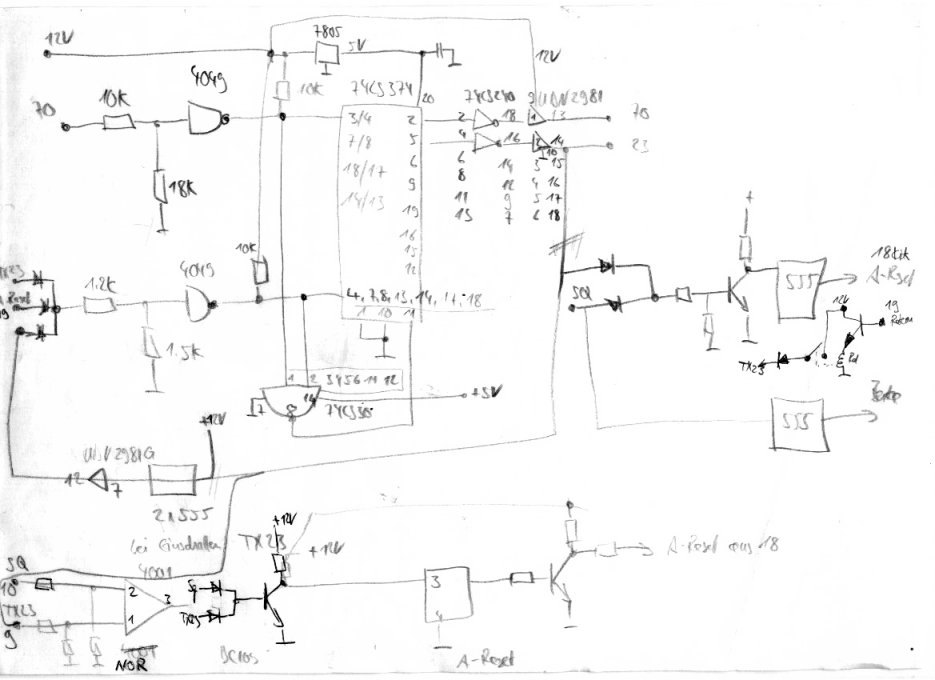 12V
7805
5V
12V
4049
10K
74LS374
20
74LS240
UDN2981
70
10K
3/4
2
2
18
1
13
70
7/8
5
4
16
14
23
18/17
6
6
14
3
15
14/13
9
8
12
4
16
19
11
9
5
17
16
13
7
6
18
15
12
18K
10K
TX23
4049
1.2K
A-Reset
4, 7, 8, 13, 14, 17, 18
1
10
11
1.5K
+
SQ
555
A-Reset
12V
19
TX23
Rel
1
2
3 4 5 6 11 12
14
+5V
7
8
555
+12V
12
7
2x555
bei Einschalten
TX23
+12V
+12V
SQ
4001
10
2
3
TX23
TX23
1
9
NOR
3
4
A-Reset aus 18
A-Reset